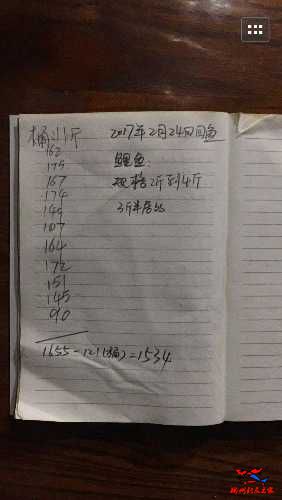 桶11斤
2017年2月24日回鱼
鲤鱼:
规格2斤到4斤
3斤半居多
162
175
167
174
107
164
172
151
145
90
1655-121(桶)=1534